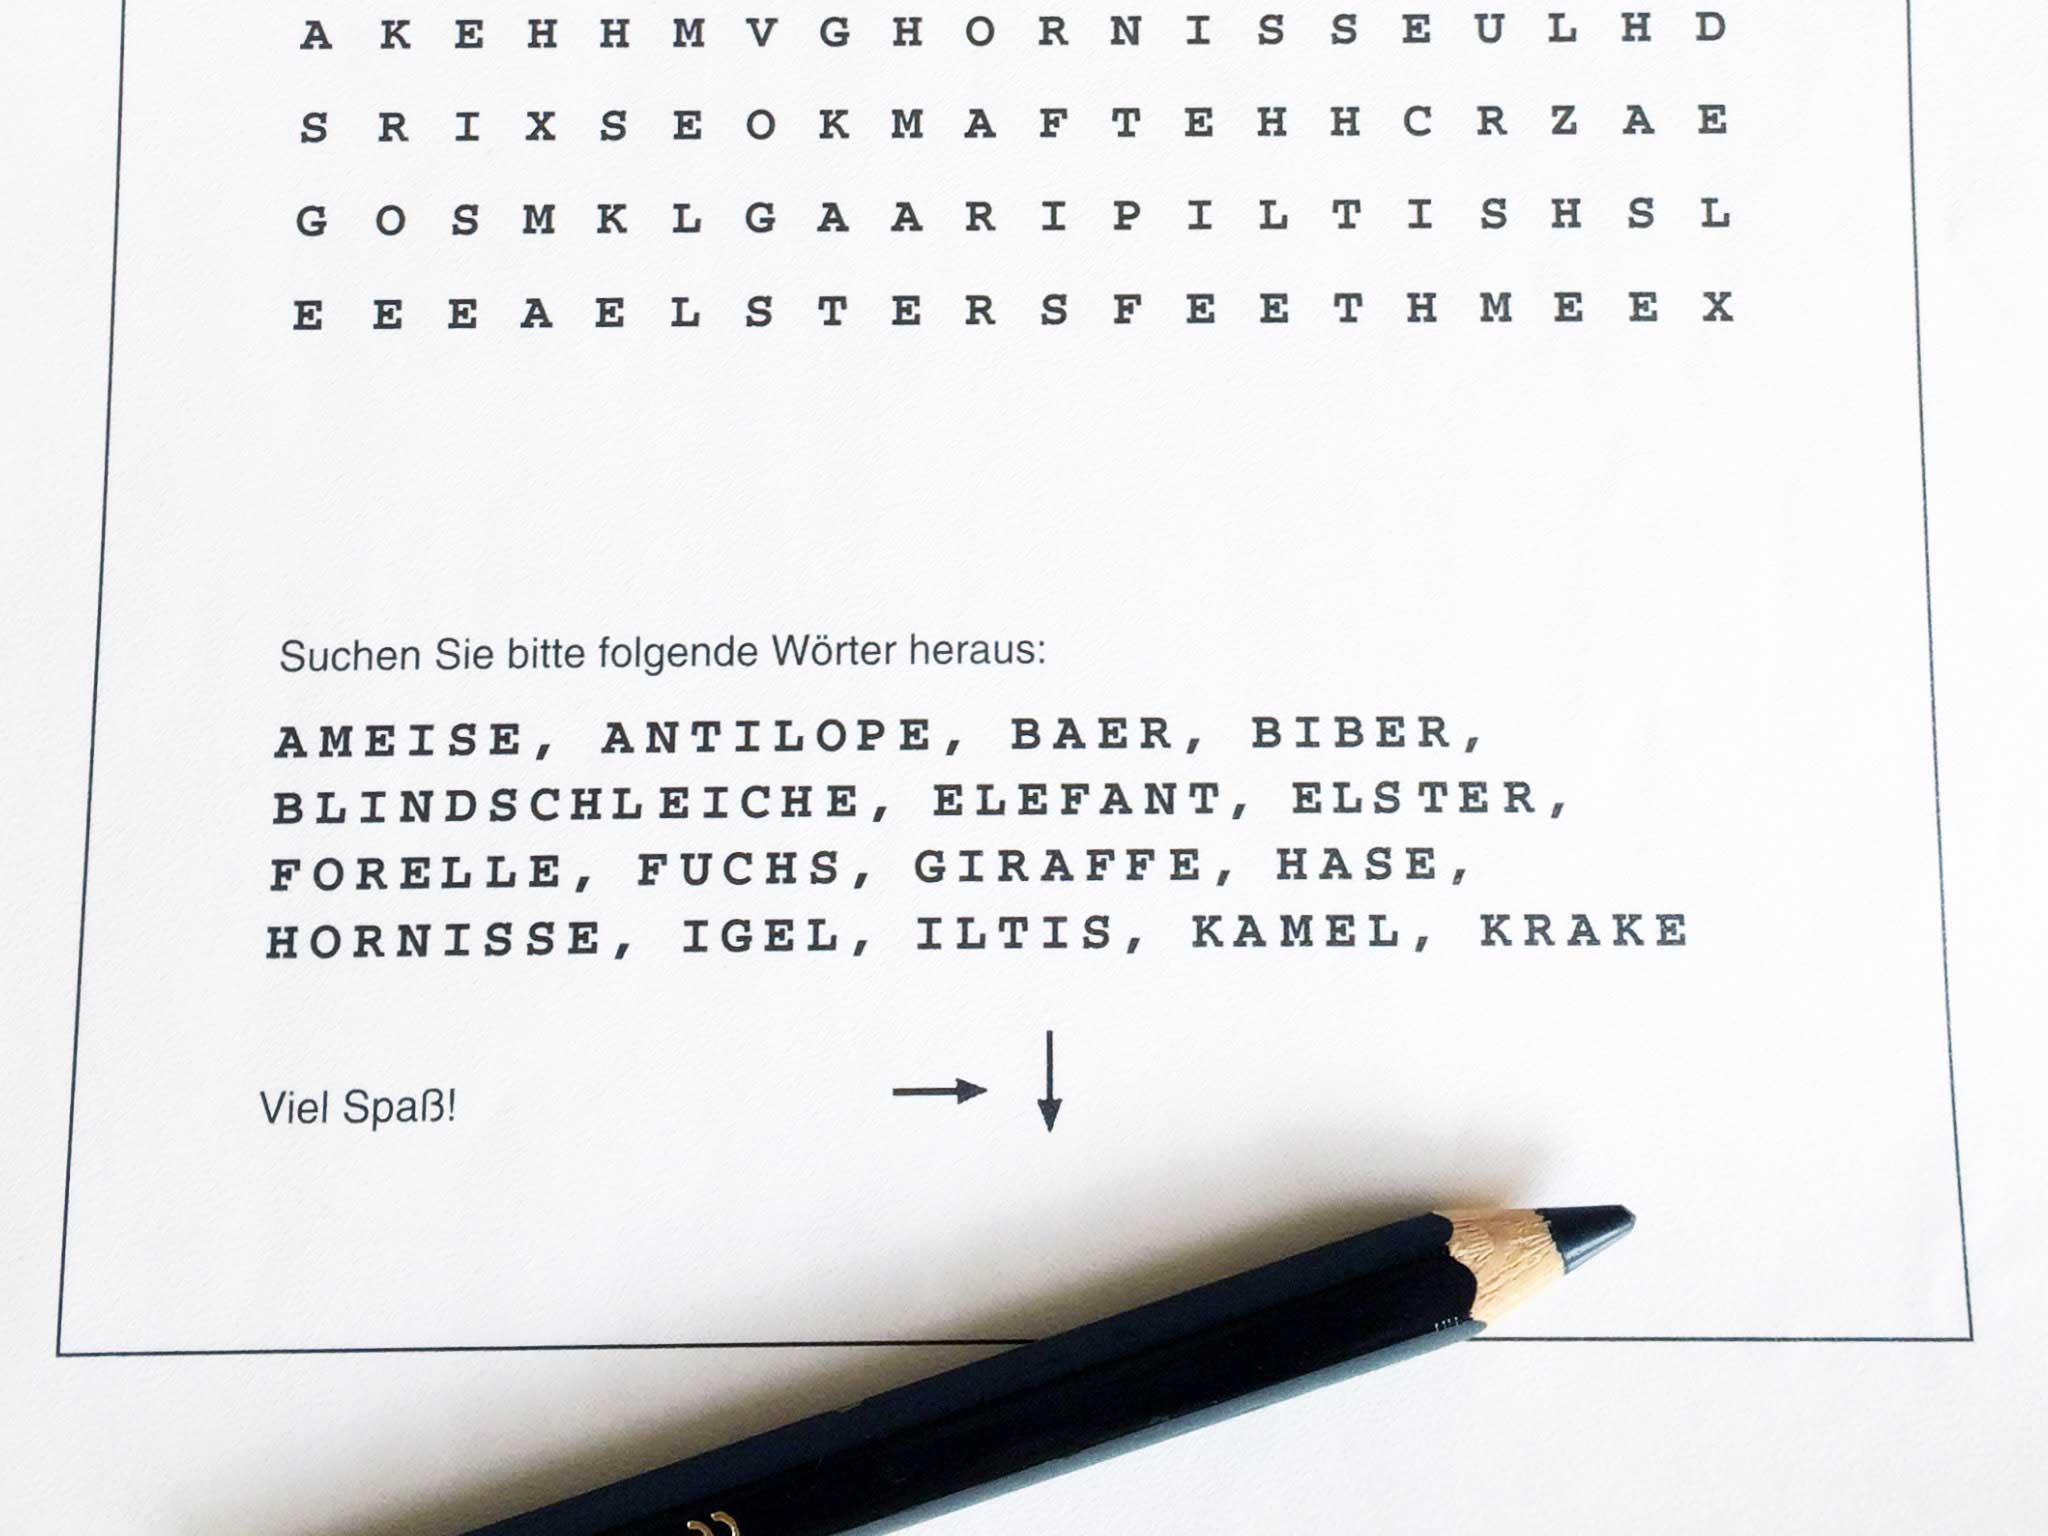 A K E H H M V G H O R N I S S E U L H D
S R I X S E O K M A F T E H H C R Z A E
G O S M K L G A A R I P I L T I S H S L
E E E A E L S T E R S F E E T H M E E X
Suchen Sie bitte folgende Wörter heraus:
AMEISE, ANTILOPE, BAER, BIBER,
BLINDSCHLEICHE, ELEFANT, ELSTER,
FORELLE, FUCHS, GIRAFFE, HASE,
HORNISSE, IGEL, ILTIS, KAMEL, KRAKE
Viel Spaß!